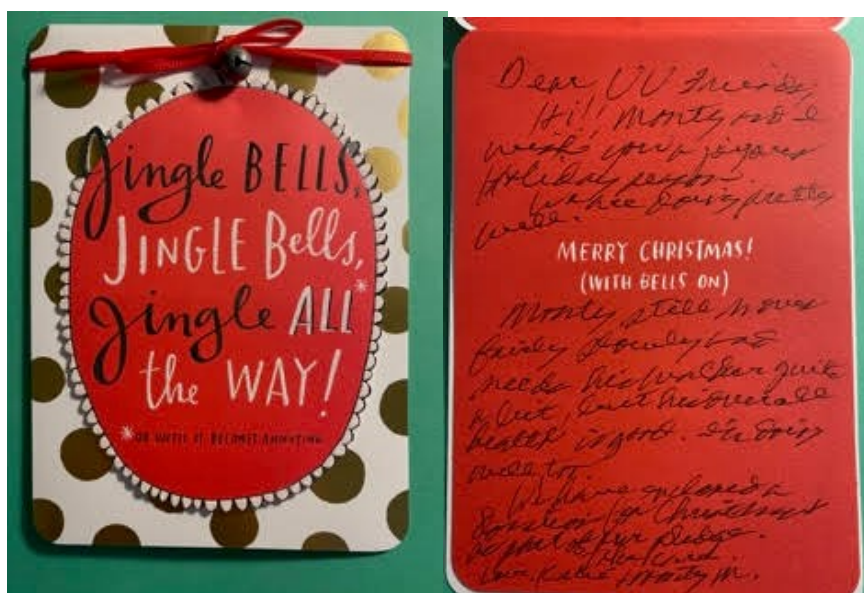 Jingle BELLS,
JINGLE Bells,
Jingle ALL*
the WAY!
*OR UNTIL IT BECOMES ANNOYING
Dear UU Friends,
Hi! Monty and I
wish you a joyous
Holiday season.
We are doing pretty
well.
MERRY CHRISTMAS!
(WITH BELLS ON)
Monty still moves
fairly slowly and
needs his walker quite
a bit, but his overall
health is good. I'm doing
well too.
We have enclosed a
donation for Christmas
as part of our pledge.
Love, Katie Monty M.